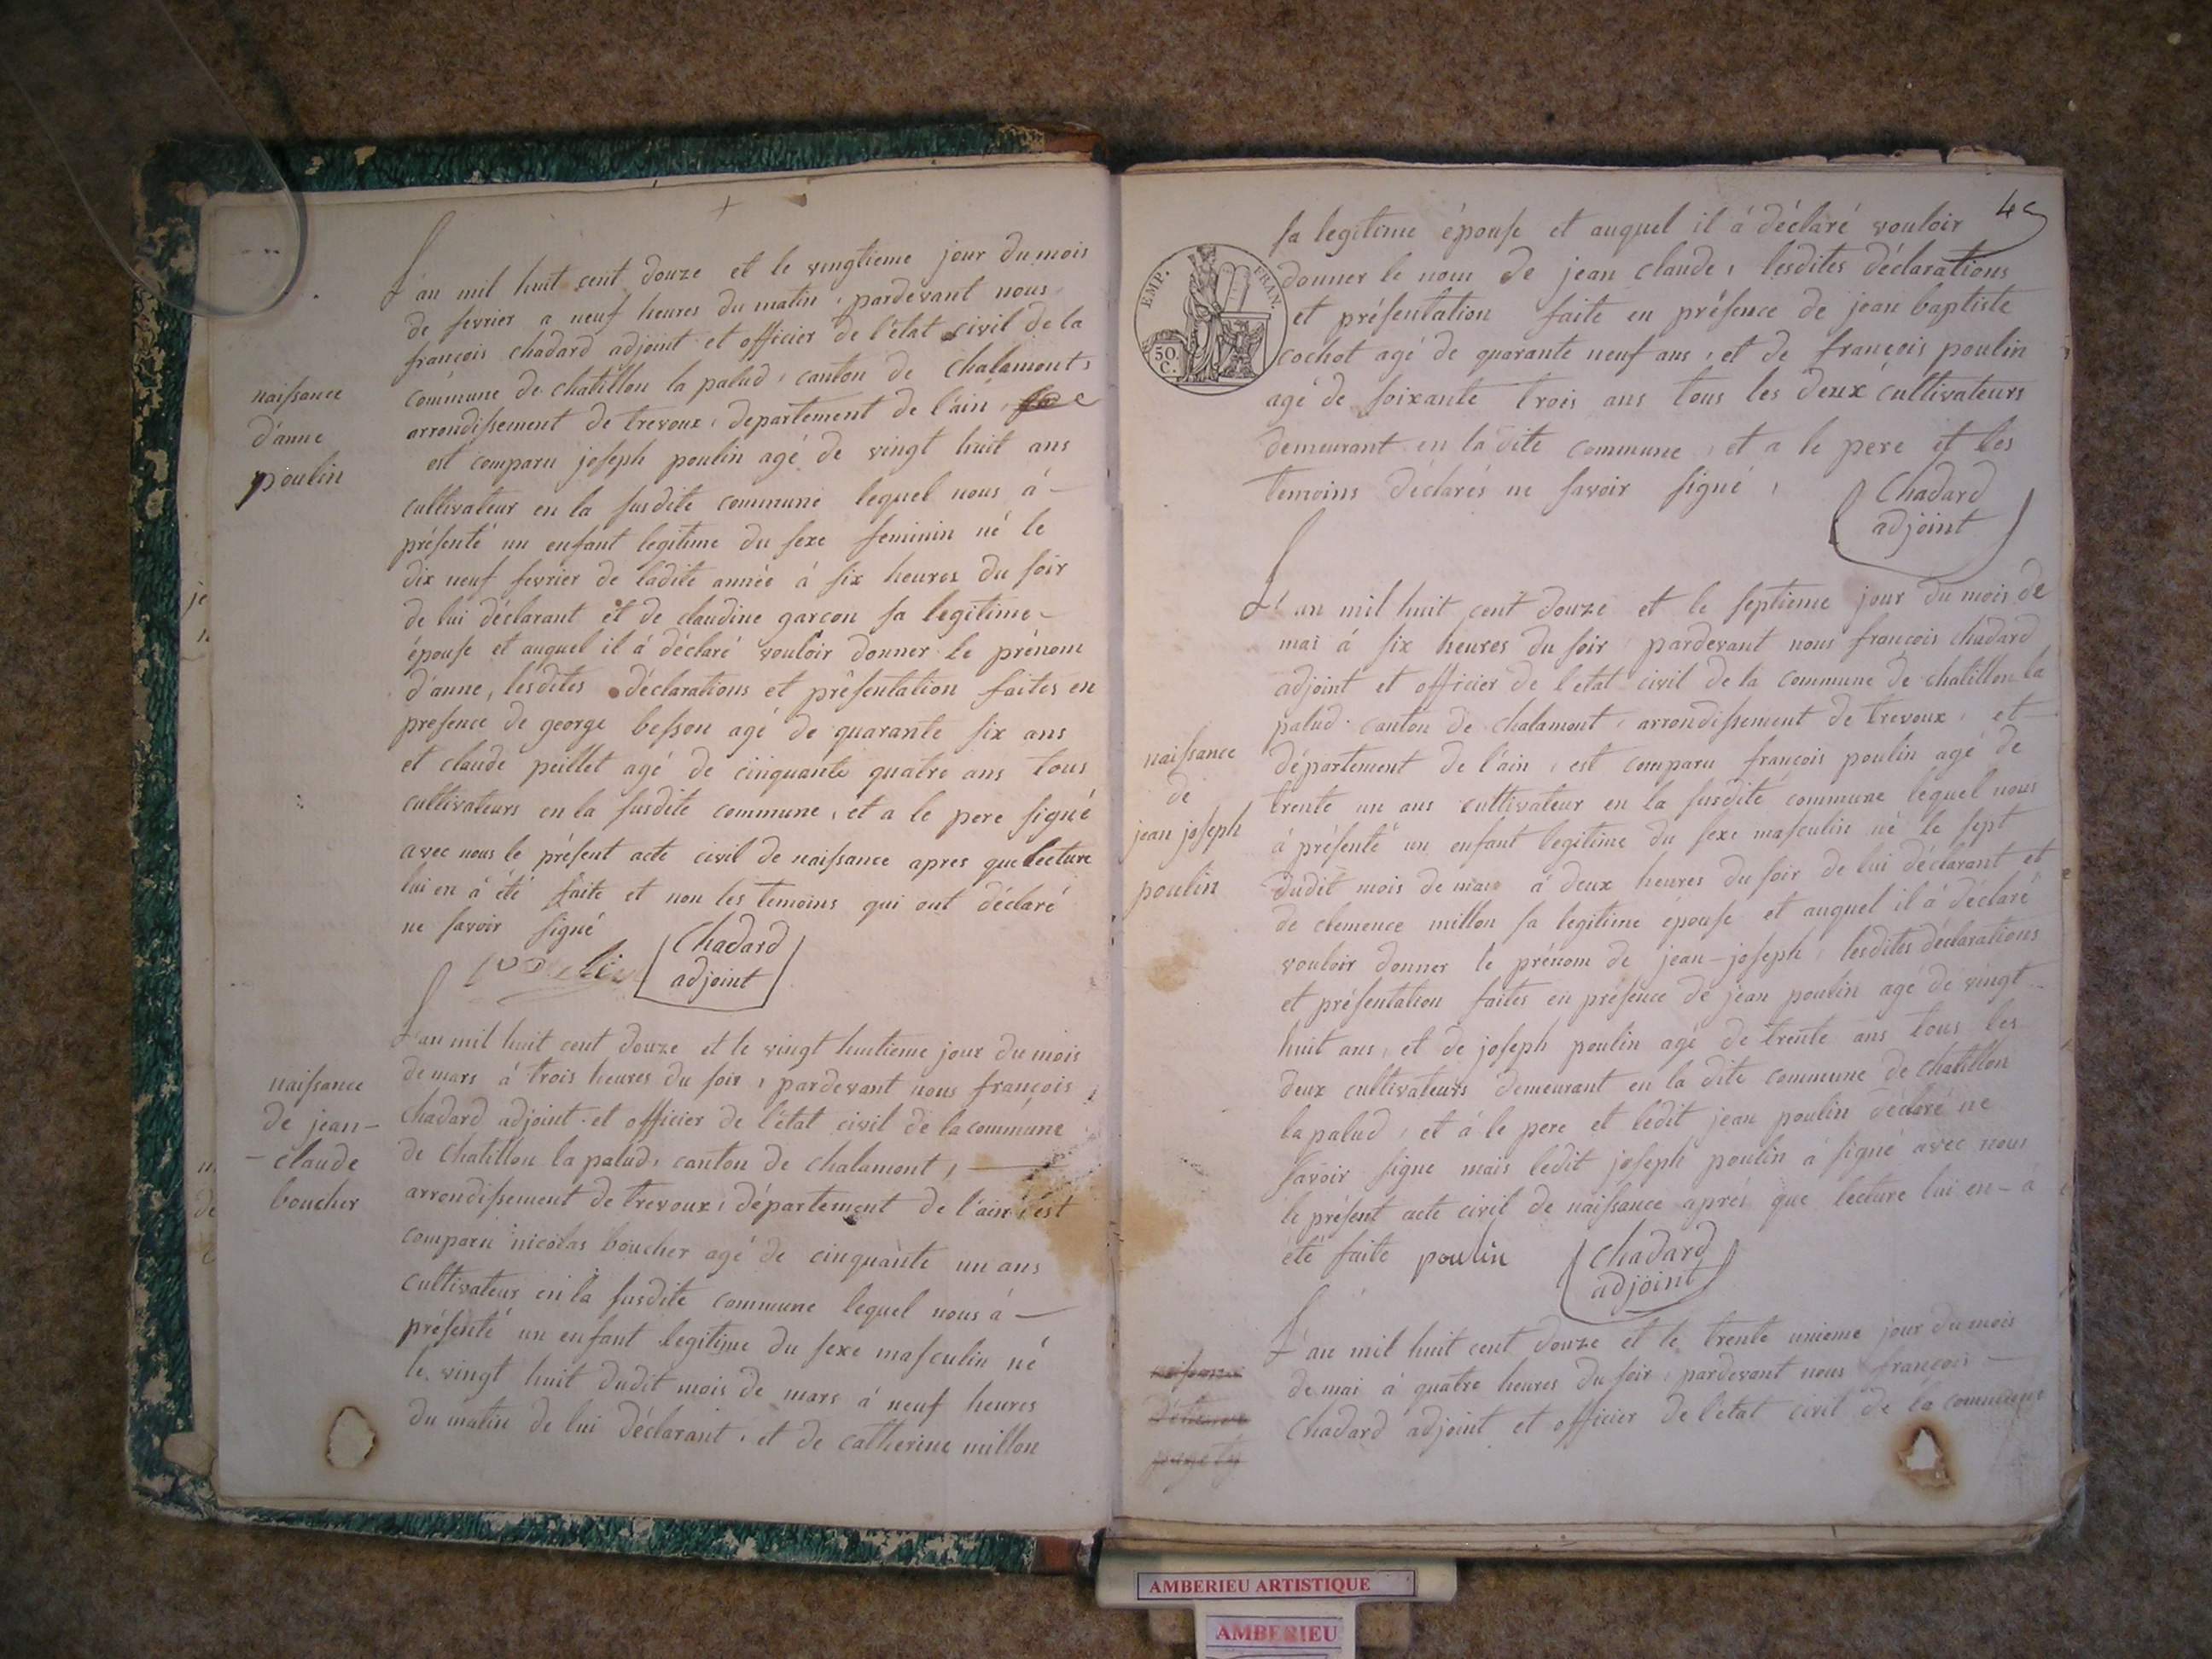 L'an mil huit cent douze et le vingtieme jour du mois
de fevrier a neuf heures du matin, pardevant nous
françois chadard adjoint et officier de l'état civil de la
commune de chatillon la palud, canton de chalamont,
arrondissement de trevoux, departement de l'ain
est comparu joseph poulin agé de vingt huit ans
cultivateur en la susdite commune lequel nous á -
présenté un enfant legitime du sexe feminin né le
dix neuf fevrier de ladite année á six heures du soir
de lui déclarant et de claudine garcon sa legitime -
épouse et auquel il á déclaré vouloir donner le prénom
d'anne, lesdites déclarations et présentation faites en
presence de george besson agé de quarante six ans
et claude peillet agé de cinquante quatre ans tous
cultivateurs en la susdite commune, et a le pere signé
avec nous le présent acte civil de naissance apres que lecture
lui en á été faite et non les temoins qui ont déclaré
ne savoir signé
Chadard
adjoint
naissance
d'anne
poulin
L'an mil huit cent douze et le vingt huitieme jour du mois
de mars á trois heures du soir, pardevant nous françois
chadard adjoint et officier de l'état civil de la commune
de chatillon la palud, canton de chalamont, -
arrondissement de trevoux, département de l'ain, est
comparu nicolas boucher agé de cinquante un ans
cultivateur en la susdite commune lequel nous á -
présenté un enfant legitime du sexe masculin né
le vingt huit dudit mois de mars á neuf heures
du matin de lui déclarant, et de catherine millon
naissance
de jean -
- claude
boucher
45
EMP. FRAN.
50.
C.
sa legitime épouse et auquel il á déclaré vouloir
donner le nom de jean claude, lesdites déclarations
et présentation faite en présence de jean baptiste
cochot agé de quarante neuf ans, et de françois poulin
agé de soixante trois ans tous les deux cultivateurs
demeurant en la dite commune, et a le pere et les
temoins déclarés ne savoir signé,
Chadard
adjoint
L'an mil huit cent douze et le septieme jour du mois de
mai á six heures du soir pardevant nous françois chadard
adjoint et officier de l'etat civil de la commune de chatillon la
palud, canton de chalamont, arrondissement de trevoux, et
département de l'ain, est comparu françois poulin agé de
trente un ans cultivateur en la susdite commune lequel nous
á présenté un enfant legitime du sexe masculin né le sept
dudit mois de mai á deux heures du soir de lui déclarant et
de clemence millon sa legitime épouse et auquel il á déclaré
vouloir donner le prénom de jean-joseph, lesdites déclarations
et présentation faites en présence de jean poulin agé de vingt
huit ans, et de joseph poulin agé de trente ans tous les
deux cultivateurs demeurant en la dite commune de chatillon
la palud, et á le pere et ledit jean poulin déclaré ne
savoir signe mais ledit joseph poulin á signé avec nous
le présent acte civil de naissance aprés que lecture lui en - á
été faite poulin
Chadard
adjoint
naissance
de
jean joseph
poulin
L'an mil huit cent douze et le trente unieme jour du mois
de mai á quatre heures du soir, pardevant nous françois -
chadard adjoint et officier de l'etat civil de la commune
AMBERIEU ARTISTIQUE
AMBERIEU